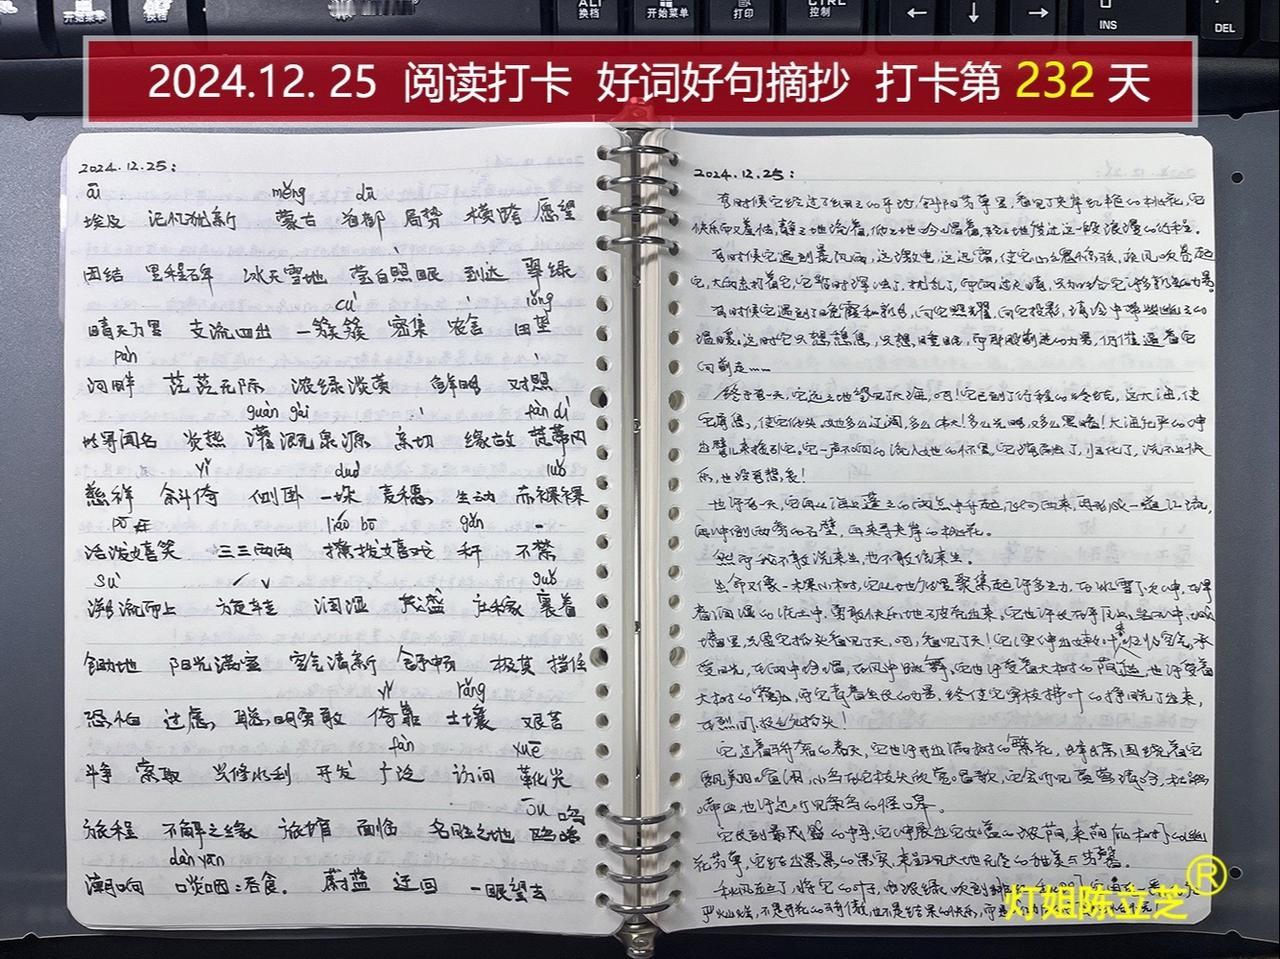 ALT
换档
开始菜单
打印
CTRL
控制
INS
DEL
2024.12. 25 阅读打卡 好词好句摘抄 打卡第 232 天
2024.12.25:
āi měng dū
埃及 记忆犹新 蒙古 首都 局势 横跨 愿望
团结 里程碑 冰天雪地 莹白照眼 到达 翠绿
cù lǒng
晴天为罢 支流四出 一簇簇 密集 农舍 田垄
pàn
河畔 茫茫无际 浓绿淡黄 鲜明 对照
guàn gài fàn dì
世界闻名 炎热 灌溉 泉源 亲切 缘故 梵蒂冈
yǐ duǒ luǒ
慈祥 斜倚 侧卧 一垛 麦穗 生动 赤裸裸
liáo bō gǎn
活泼嬉笑 三三两两 撩拨嬉戏 秆 不禁
sù guǒ
溯流而上 方便 湿润 茂盛 庄稼 裹着
勤地 阳光满室 空气清新 舒畅 极其 挡住
yǐ rǎng
恐怕 过虑 聪明勇敢 倚靠 土壤 艰苦
fàn xuē
斗争 索取 兴修水利 开发 广泛 访问 靴尖
ōu
旅程 不解之缘 旅馆 面临 名胜之地 鸥
dàn yān
潮响 啖咽:吞食. 蔚蓝 迂回 一眼望去
2024.12.25:
有时候它经过了细细的平沙,斜阳芳草里,看见了夹岸红艳的桃花,它
快乐而又羞怯,静静地流着,低低地吟唱着,轻轻地度过这一段浪漫的行程。
有时候它遇到暴风雨,这激电,这迅雷,使它心魂惊骇,疾风吹卷起
它,大雨击打着它,它暂时浑浊了,扰乱了,而雨过天晴,只加给它许多新生的力量。
有时候它遇到了晚霞和新月,向它照耀,向它投影,清冷中带些幽幽的
温暖。这时它只想憩息,只想睡眠,而那股前进的力量,仍催逼着它
向前走……
终于有一天,它远远地望见了大海,呵!它已到了行程的终结,这大海,使
它屏息,使它低头,她多么辽阔,多么伟大!多么光明,又多么黑暗!大海庄严的伸
出臂儿来接引它。它一声不响的流入她的怀里,它消融了,归化了,说不上快
乐,也没有悲哀!
也许有一天,它再从海上蓬蓬的雨点中升起,飞向西来,再形成一道江流,
再冲倒两旁的石壁,再来寻夹岸的桃花。
然而我不敢说来生,也不敢信来生。
生命又像一棵小树,它从地底里聚集起许多生力,在冰雪下欠伸,在早
春润湿的泥土中,勇敢快乐地破壳出来。它也许长在平原上,岩石中,城
墙里,只要它抬头看见了天,呵,看见了天!它便伸出嫩叶来吸收空气,承
受日光,在雨中吟唱,在风中跳舞,它也许受着大树的荫遮,也许受着
大树的覆压,而它青春生长的力量,终使它穿枝拂叶的挣脱了出来,
在烈日下挺立抬头!
它过着骄奢的春天,它也许开出满树的繁花,蜂蝶围绕着它
飘翔喧闹,小鸟在它枝头欣赏唱歌,它会听见黄莺清吟,杜鹃
啼血,也许还听见枭鸟的怪鸣。
它长到最茂盛的中年,它伸展出它如盖的浓荫,来荫庇树下的幽
花芳草,它结出累累的果实,来呈现大地无尽的甜美与芳馨。
灯姐陈立芝®